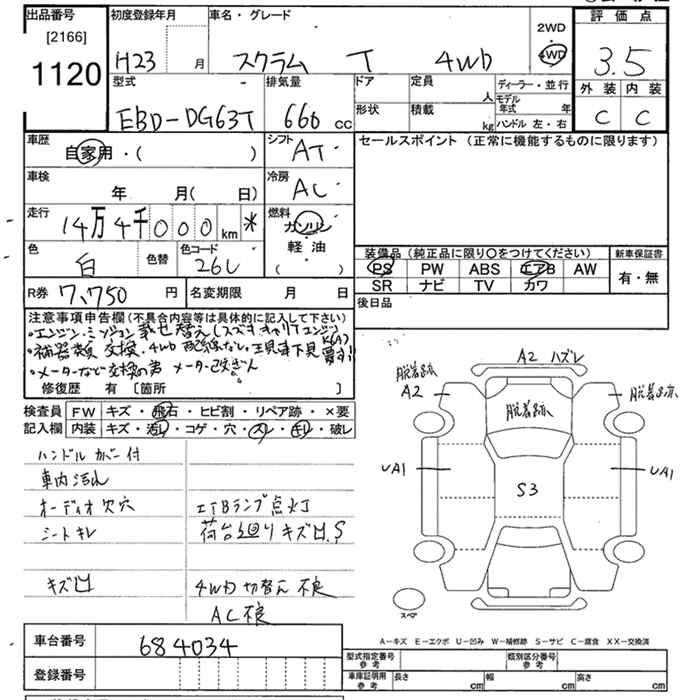 出品番号 初度登録年月 車名・グレード 評価点
[2166] 2WD
1120 H23 月 スクラム T 4WD 4WD 3.5
型式 排気量 ドア 定員 人 ディーラー・並行 外装 内装
EBD-DG63T 660 cc 形状 積載 kg モデル年式 年 C C
ハンドル 左・右
車歴 自家用・( ) シフト AT セールスポイント (正常に機能するものに限ります)
車検 年 月( 日) 冷房 AC
走行 14万4千000 km * 燃料 ガソリン
軽油
( )
色 白 色替 色コード 26U 装備品 (純正品に限り○をつけてください) 新車保証書
PS PW ABS エアB AW 有・無
SR ナビ TV カワ
R券 7,750 円 名変期限 月 日 後日品
注意事項申告欄 (不具合内容等は具体的に記入して下さい)
・エンジン・ミッション載せ替え(スズキキャリTエンジン
・補器類交換・4WD配線ない。現車下見
・メーターなど交換の為 メーター改ざん。
修復歴 有 [箇所 ]
検査員 FW キズ・飛石・ヒビ割・リペア跡・×要
記入欄 内装 キズ・汚レ・コゲ・穴・スレ・キレ・破レ
ハンドルカバー付
車内汚れ
オーディオ欠穴 エアBランプ点灯
シートキレ 荷台廻りキズ凹.S
キズ凹 4WD切替え不良
AC不良
A2 ハズレ
脱着跡 A2
脱着跡
脱着跡
UA1 S3 UA1
スペア
A-キズ E-エクボ U-凹み W-補修跡 S-サビ C-腐食 XX-交換済
車台番号 684034
登録番号
型式指定番号 参考 類別区分番号 参考
車庫証明用 参考 長さ cm 幅 cm 高さ cm